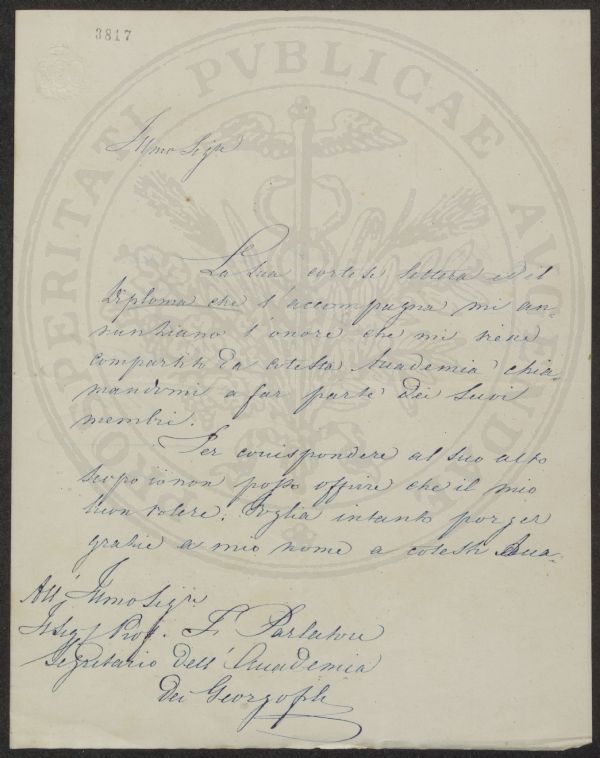 3817
PROSPERITATI PVBLICAE AVGENDAE
Illmo Sigre
La sua cortese lettera ed il
Diploma che l'accompagna mi an-
nunziano l'onore che mi viene
compartito da cotesta Accademia chia-
mandomi a far parte dei Suoi
membri.
Per corrispondere al suo alto
scopo io non posso offrire che il mio
buon volere. Voglia intanto porger
grazie a mio nome a cotesti Acca-
All' Illmo Sigre
Il Sig. Prof. F. Parlatore
Segretario dell' Accademia
dei Georgofili